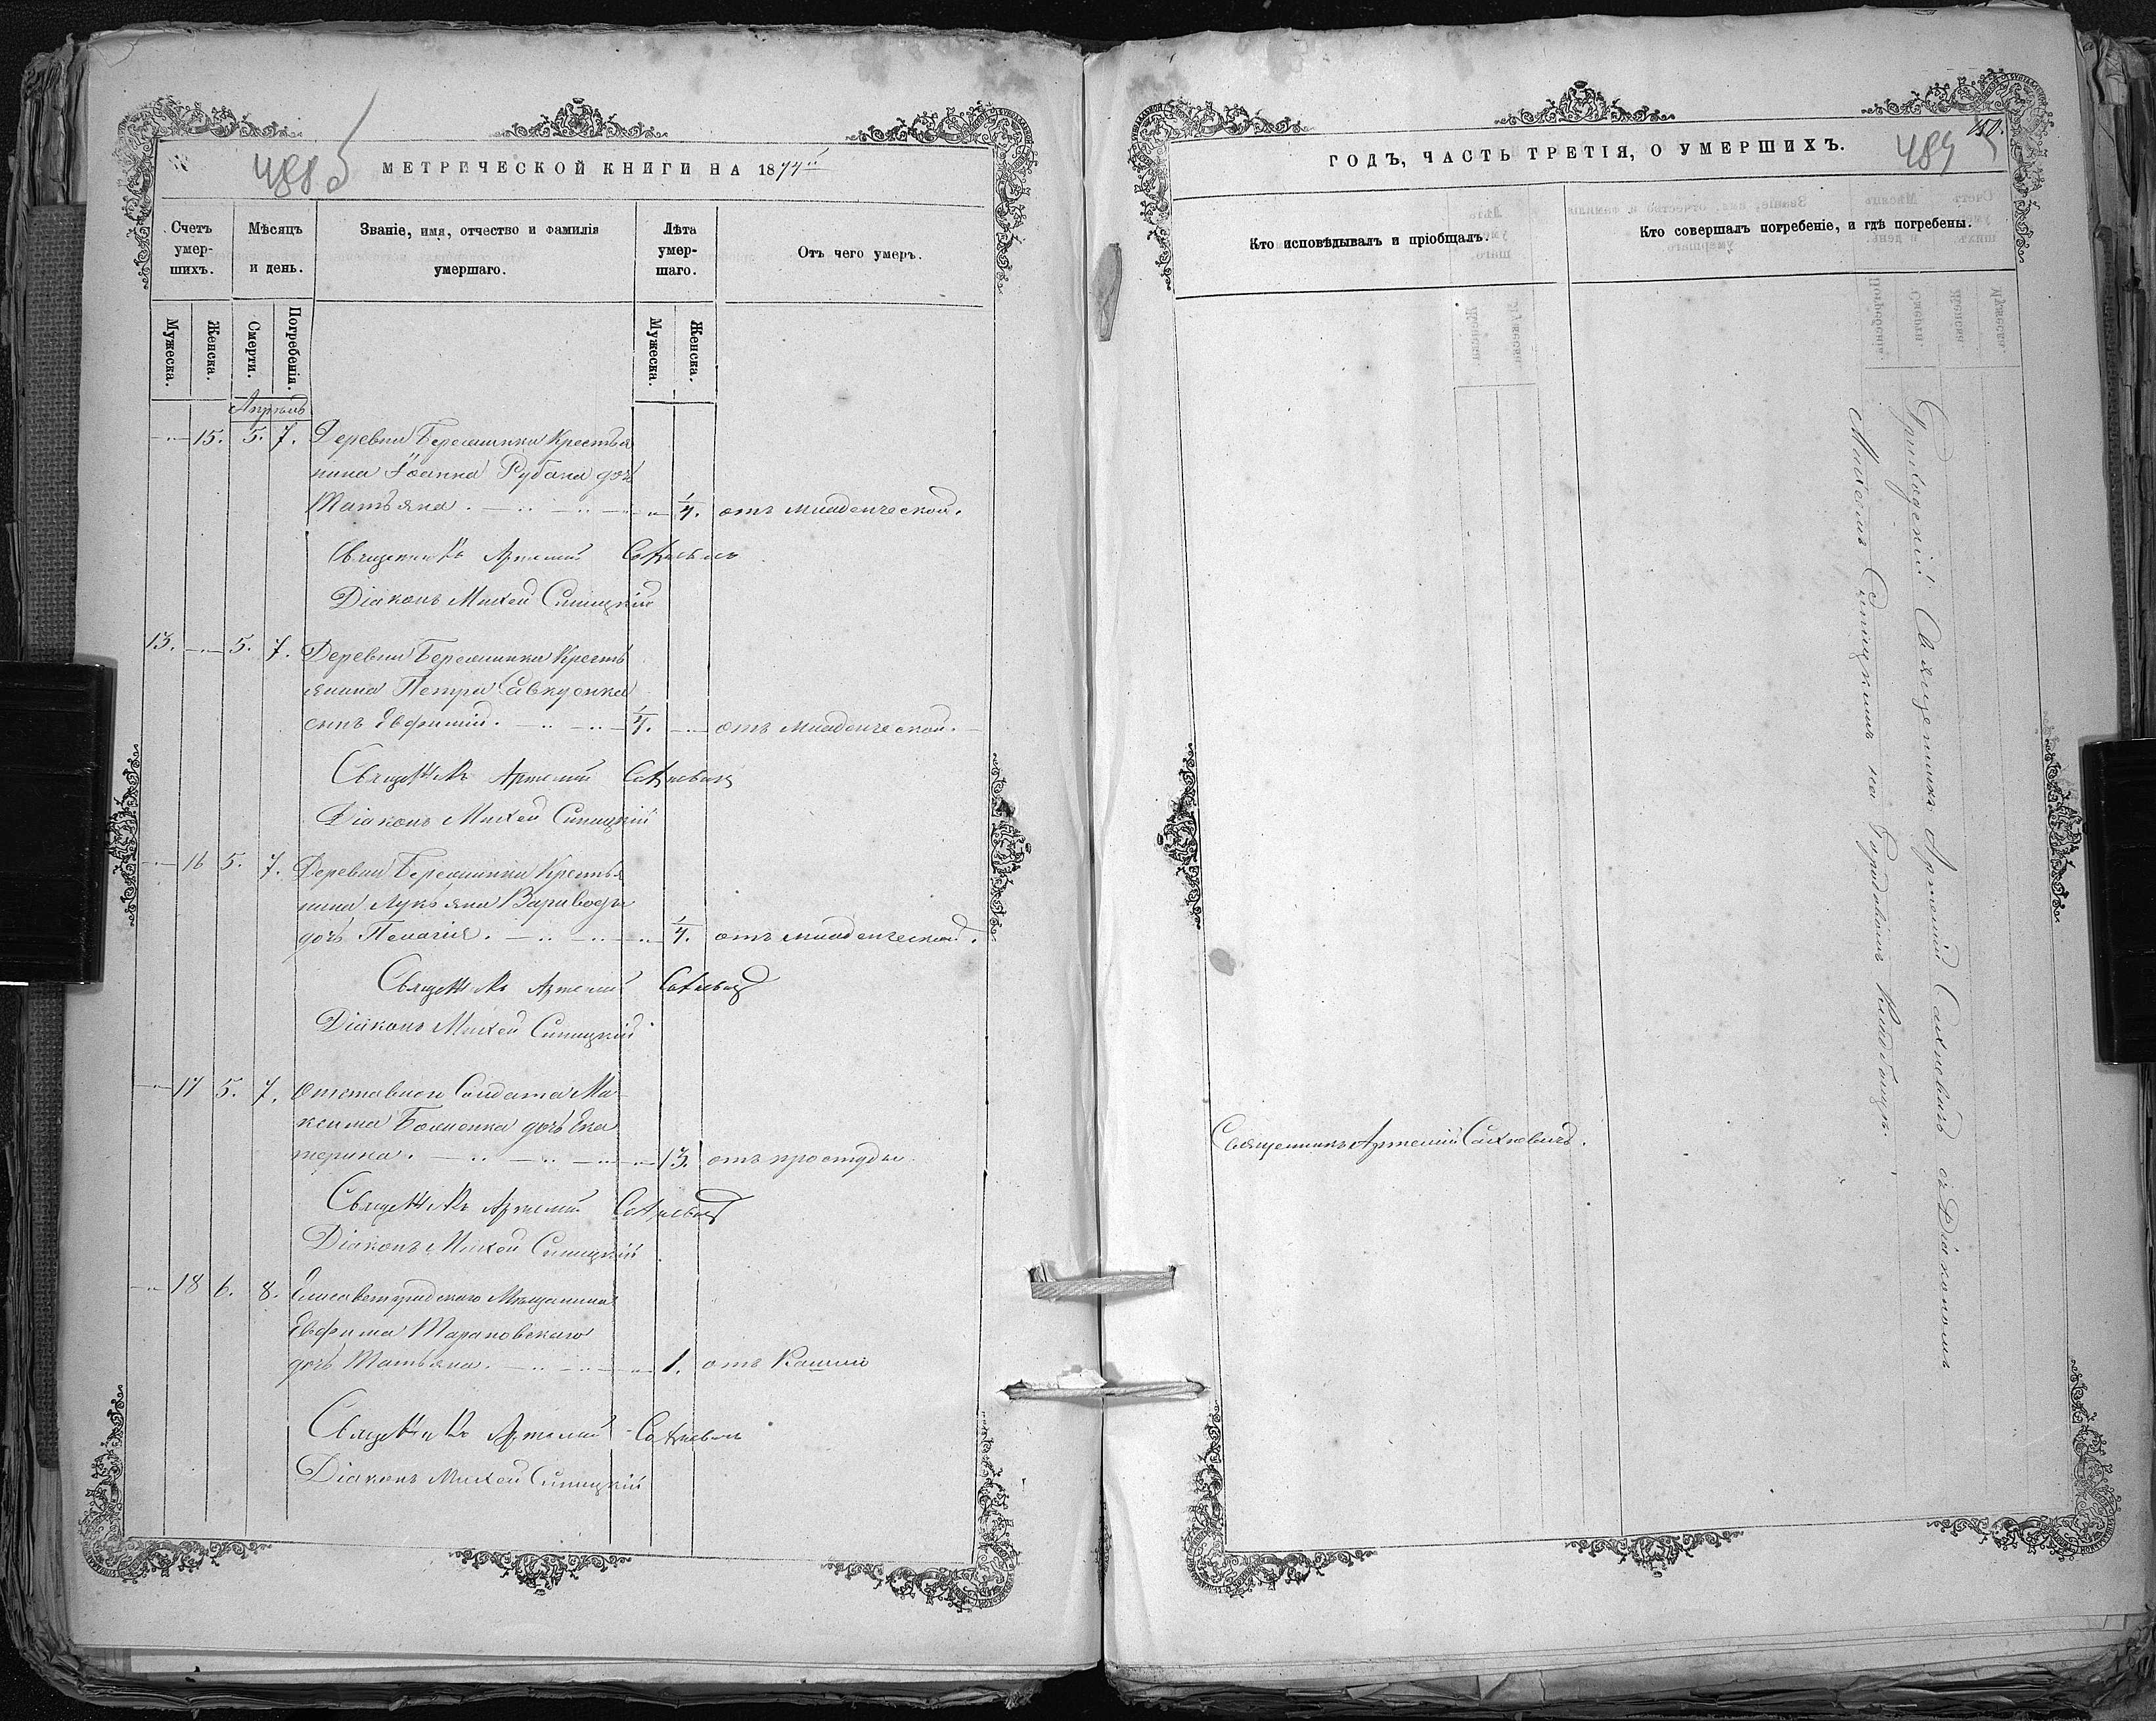 488 б
МЕТРИЧЕСКОЙ КНИГИ НА 1874й
Счетъ умер-шихъ.
Мѣсяцъ и день.
Званіе, имя, отчество и фамилія умершаго.
Лѣта умер-шаго.
Отъ чего умеръ.
Мужеска.
Женска.
Смерти.
Погребенія.
Мужеска.
Женска.
Апрѣль
15. 5. 7. Деревни Березинки Крестья
нина Іоанна Рубана дочь
Татьяна. 1/4. отъ младенческой.
Священникъ Артемий Сахневичъ
Діаконъ Михей Синицкій
13. 5. 7. Деревни Березинки Кресть
янина Петра Савкуенка
сынъ Евфимій. 1/4. отъ младенческой.
Священникъ Артемий Сахневичъ
Діаконъ Михей Синицкій
16 5. 7. Деревни Березинки Крестья
нина Лукьяна Вариводы
дочь Пелагія. 1/4. отъ младенческой.
Священникъ Артемий Сахневичъ
Діаконъ Михей Синицкій
17 5. 7. Отставного Солдата Ма
ксима дочь Ека
терина. 13. отъ простуды
Священникъ Артемий Сахневичъ
Діаконъ Михей Синицкій
18 6. 8. Елисаветградскаго Мѣщанина
Евфима Тарановскаго
дочь Татьяна. 1. отъ Кашли
Священникъ Артемий Сахневичъ
Діаконъ Михей Синицкій
150.
489
ГОДЪ, ЧАСТЬ ТРЕТІЯ, О УМЕРШИХЪ.
Кто исповѣдывалъ и пріобщалъ.
Кто совершалъ погребеніе, и гдѣ погребены.
Священникъ Артемій Сахневичъ.
Приходскій Священникъ Артемій Сахневичъ съ Діакономъ
Михеемъ Синицкимъ на Кладбищѣ.